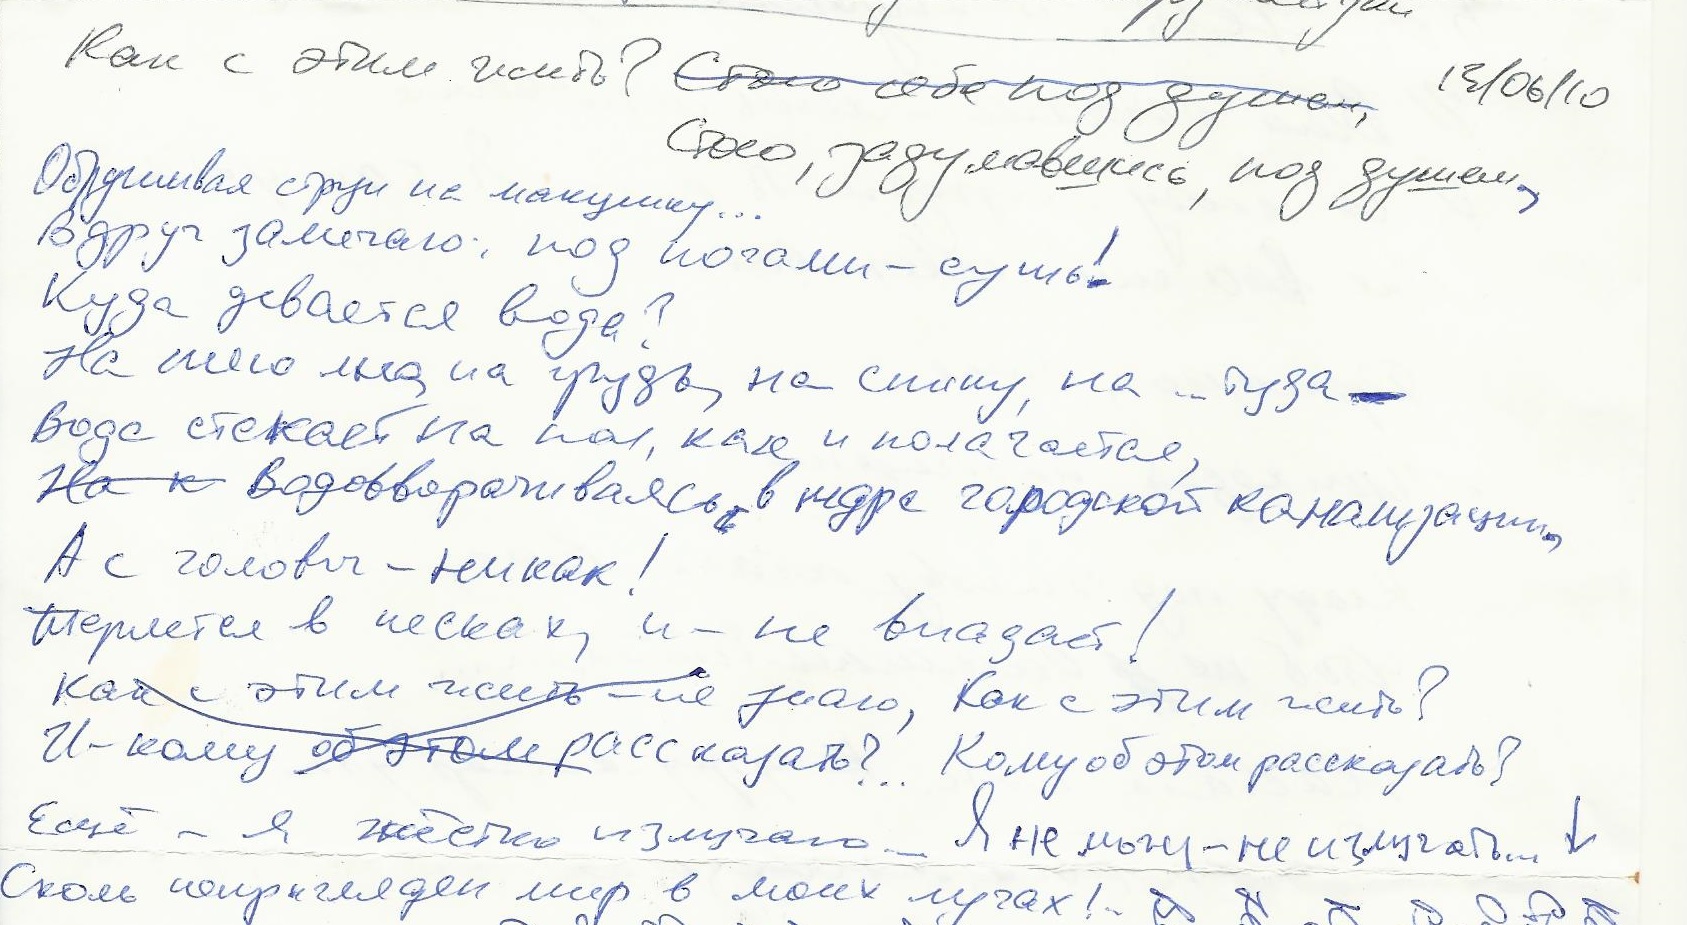 Как с этим жить? Стою себе под душем, 13/06/10
Стою, задумавшись, под душем,
Обрушивая струи на макушку...
Вдруг замечаю: под ногами – сушь!
Куда девается вода?
На шею льёт, на грудь, на спину, на ... туда –
Вода стекает на пол, как и полагается,
На к Водовворачиваясь в ждра городской канализации,
А с головы – никак!
Теряется в песках, и – не впадает!
Как с этим жить – не знаю, Как с этим жить?
И – кому об этом рассказать?.. Кому об этом рассказать?
Ещё – Я жёстко излучаю... Я не могу – не излучать... ↓
Сколь непригляден мир в моих лучах!..